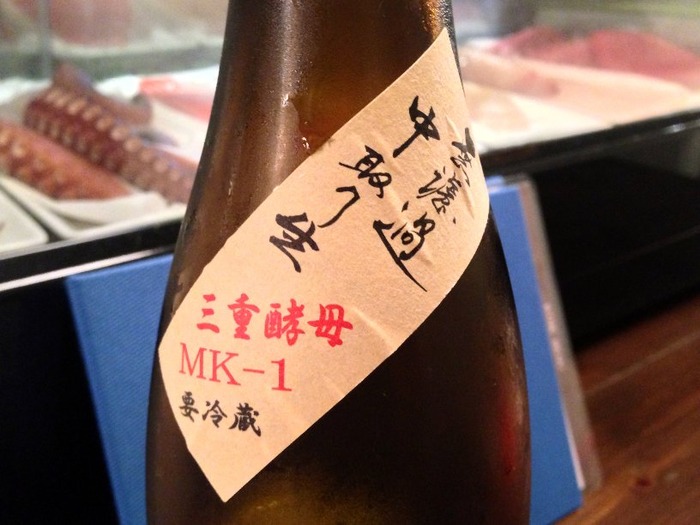 無濾過
中取り生
三重酵母
MK-1
要冷蔵